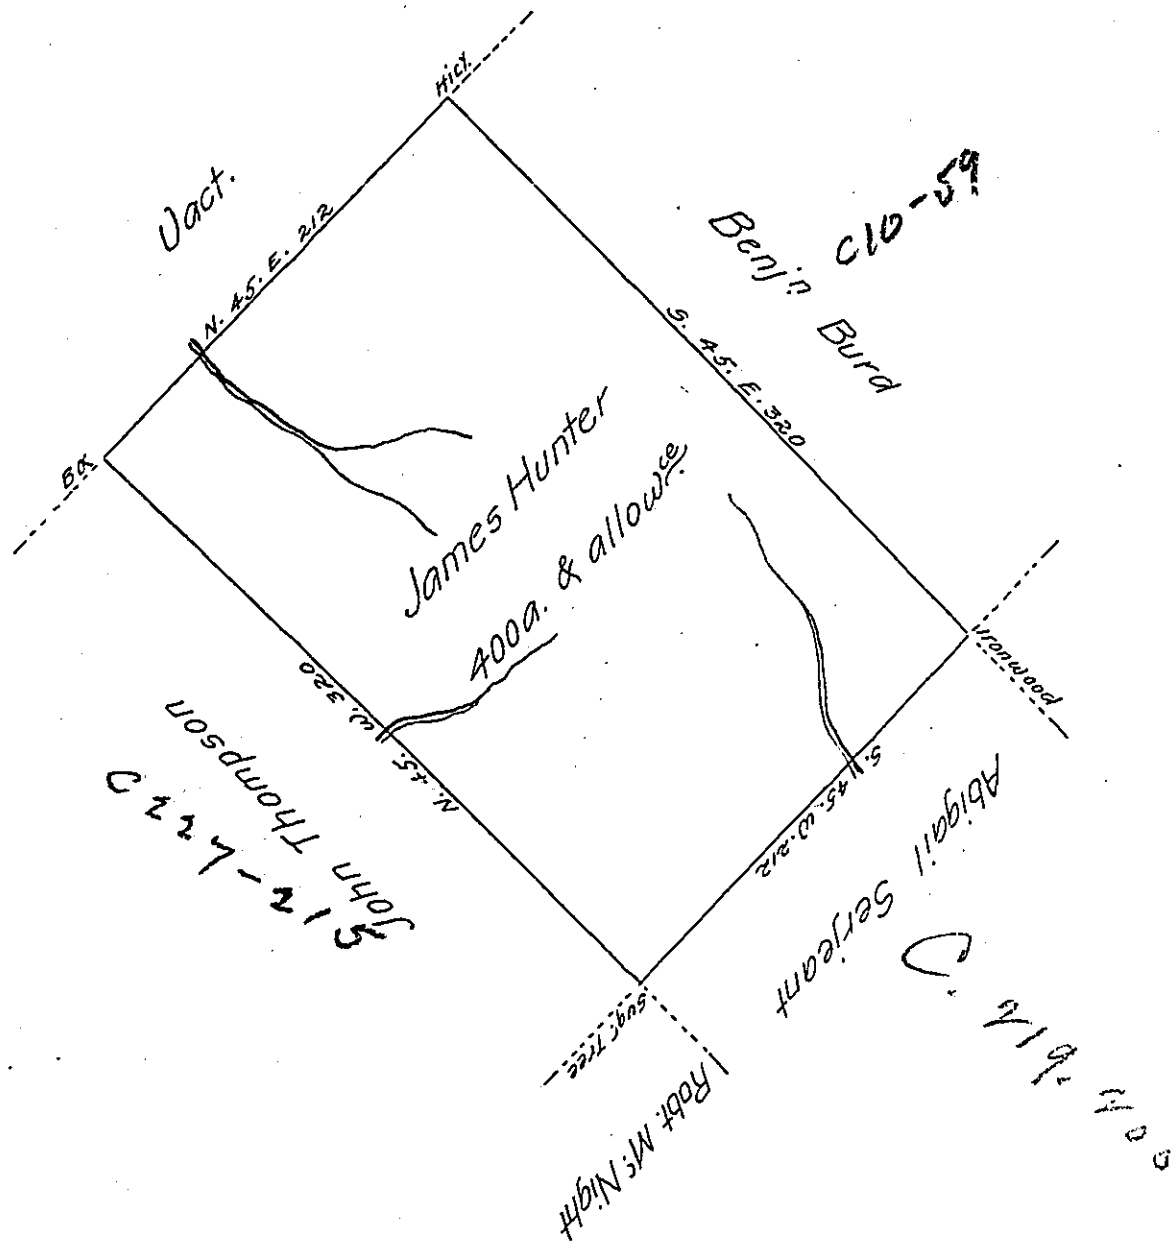 Hicy.
Vact.
N. 45. E. 212
Benjn Burd
C10-59
S. 45. E. 320
Bα
James Hunter
400a. & allowce
Uronwood
N. 45. W. 320
John Thompson
C227-215
S. 45. W. 212
Abigail Serjeant
C. 219. 400
Sugr. Tree
Robt. Mc.Night